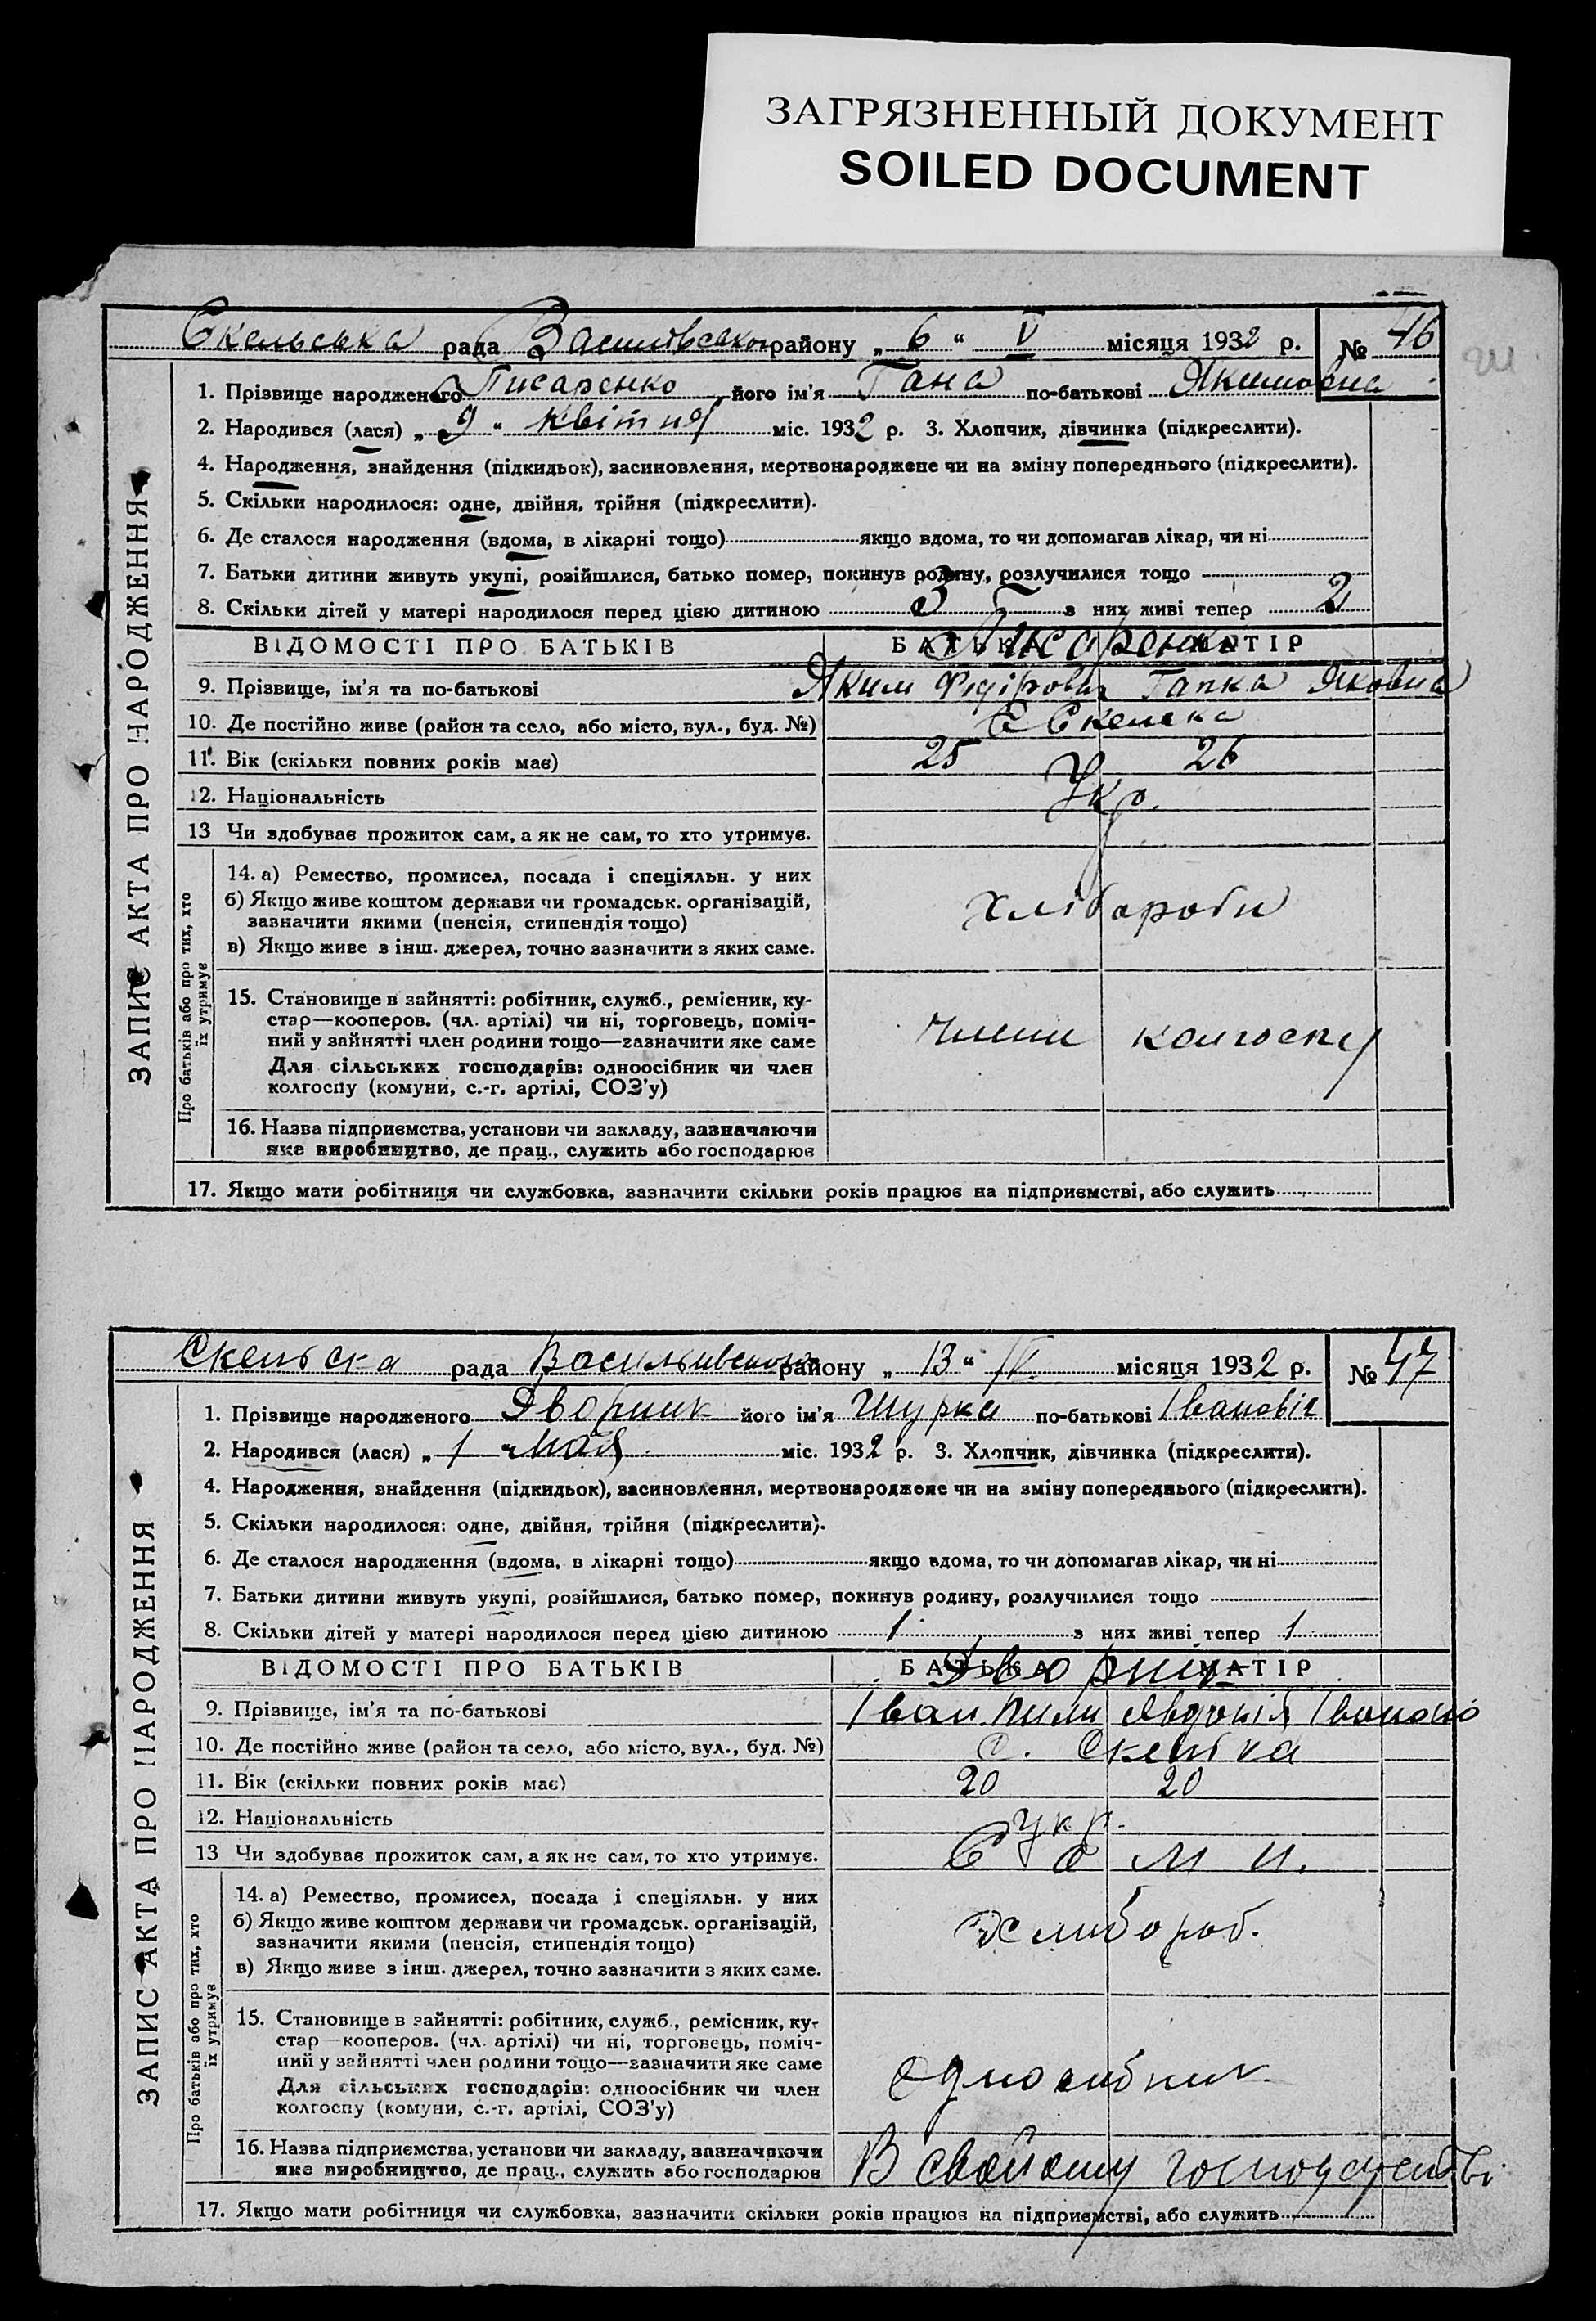 ЗАГРЯЗНЕННЫЙ ДОКУМЕНТ
SOILED DOCUMENT
Скельська рада Василівського району „ 6 “ V місяця 1932 р. № 46
1. Прізвище народженого Писаренко його ім'я Гана по-батькові Якимовна
2. Народився (лася) „ 9 “ квітня міс. 1932 р. 3. Хлопчик, дівчинка (підкреслити).
4. Народження, знайдення (підкидьок), засиновлення, мертвонароджене чи на зміну попереднього (підкреслити).
5. Скільки народилося: одне, двійня, трійня (підкреслити).
6. Де сталося народження (вдома, в лікарні тощо) якщо вдома, то чи допомагав лікар, чи ні
7. Батьки дитини живуть укупі, розійшлися, батько помер, покинув родину, розлучилися тощо
8. Скільки дітей у матері народилося перед цією дитиною 3 з них живі тепер 2
ВІДОМОСТІ ПРО БАТЬКІВ БАТЬКА МАТІР
Писаренко
9. Прізвище, ім'я та по-батькові Яким Федірович Гапка Яковна
10. Де постійно живе (район та село, або місто, вул., буд. №) С Скелька
11. Вік (скільки повних років має) 25 26
12. Національність Укр.
13 Чи здобуває прожиток сам, а як не сам, то хто утримує.
14. а) Ремество, промисел, посада і спеціяльн. у них
б) Якщо живе коштом держави чи громадськ. організацій,
зазначити якими (пенсія, стипендія тощо) Хлібороби
в) Якщо живе з інш. джерел, точно зазначити з яких саме.
15. Становище в зайнятті: робітник, служб., ремісник, ку-
стар—кооперов. (чл. артілі) чи ні, торговець, поміч-
ний у зайнятті член родини тощо—зазначити яке саме члени колгоспу
Для сільських господарів: одноосібник чи член
колгоспу (комуни, с.-г. артілі, СОЗ'у)
16. Назва підприємства, установи чи закладу, зазначаючи
яке виробництво, де прац., служить або господарює
17. Якщо мати робітниця чи службовка, зазначити скільки років працює на підприємстві, або служить
ЗАПИС АКТА ПРО НАРОДЖЕННЯ
Про батьків або про тих, хто
їх утримує
Скельска рада Васильивского району „ 13 “ місяця 1932 р. № 47
1. Прізвище народженого Дворник його ім'я Шурка по-батькові Івановіч
2. Народився (лася) „ 1 “ мая міс. 1932 р. 3. Хлопчик, дівчинка (підкреслити).
4. Народження, знайдення (підкидьок), засиновлення, мертвонароджене чи на зміну попереднього (підкреслити).
5. Скільки народилося: одне, двійня, трійня (підкреслити).
6. Де сталося народження (вдома, в лікарні тощо) якщо вдома, то чи допомагав лікар, чи ні
7. Батьки дитини живуть укупі, розійшлися, батько помер, покинув родину, розлучилися тощо
8. Скільки дітей у матері народилося перед цією дитиною 1 з них живі тепер 1
ВІДОМОСТІ ПРО БАТЬКІВ БАТЬКА МАТІР
Дворник
9. Прізвище, ім'я та по-батькові Іван Явдокія
10. Де постійно живе (район та село, або місто, вул., буд. №) с. Скелька
11. Вік (скільки повних років має) 20 20
12. Національність укр.
13 Чи здобуває прожиток сам, а як не сам, то хто утримує. Сами.
14. а) Ремество, промисел, посада і спеціяльн. у них
б) Якщо живе коштом держави чи громадськ. організацій,
зазначити якими (пенсія, стипендія тощо) Хлибороб.
в) Якщо живе з інш. джерел, точно зазначити з яких саме.
15. Становище в зайнятті: робітник, служб., ремісник, ку-
стар—кооперов. (чл. артілі) чи ні, торговець, поміч-
ний у зайнятті член родини тощо—зазначити яке саме
Для сільських господарів: одноосібник чи член Односибник
колгоспу (комуни, с.-г. артілі, СОЗ'у)
16. Назва підприємства, установи чи закладу, зазначаючи
яке виробництво, де прац., служить або господарює В свойому
17. Якщо мати робітниця чи службовка, зазначити скільки років працює на підприємстві, або служить
ЗАПИС АКТА ПРО НАРОДЖЕННЯ
Про батьків або про тих, хто
їх утримує